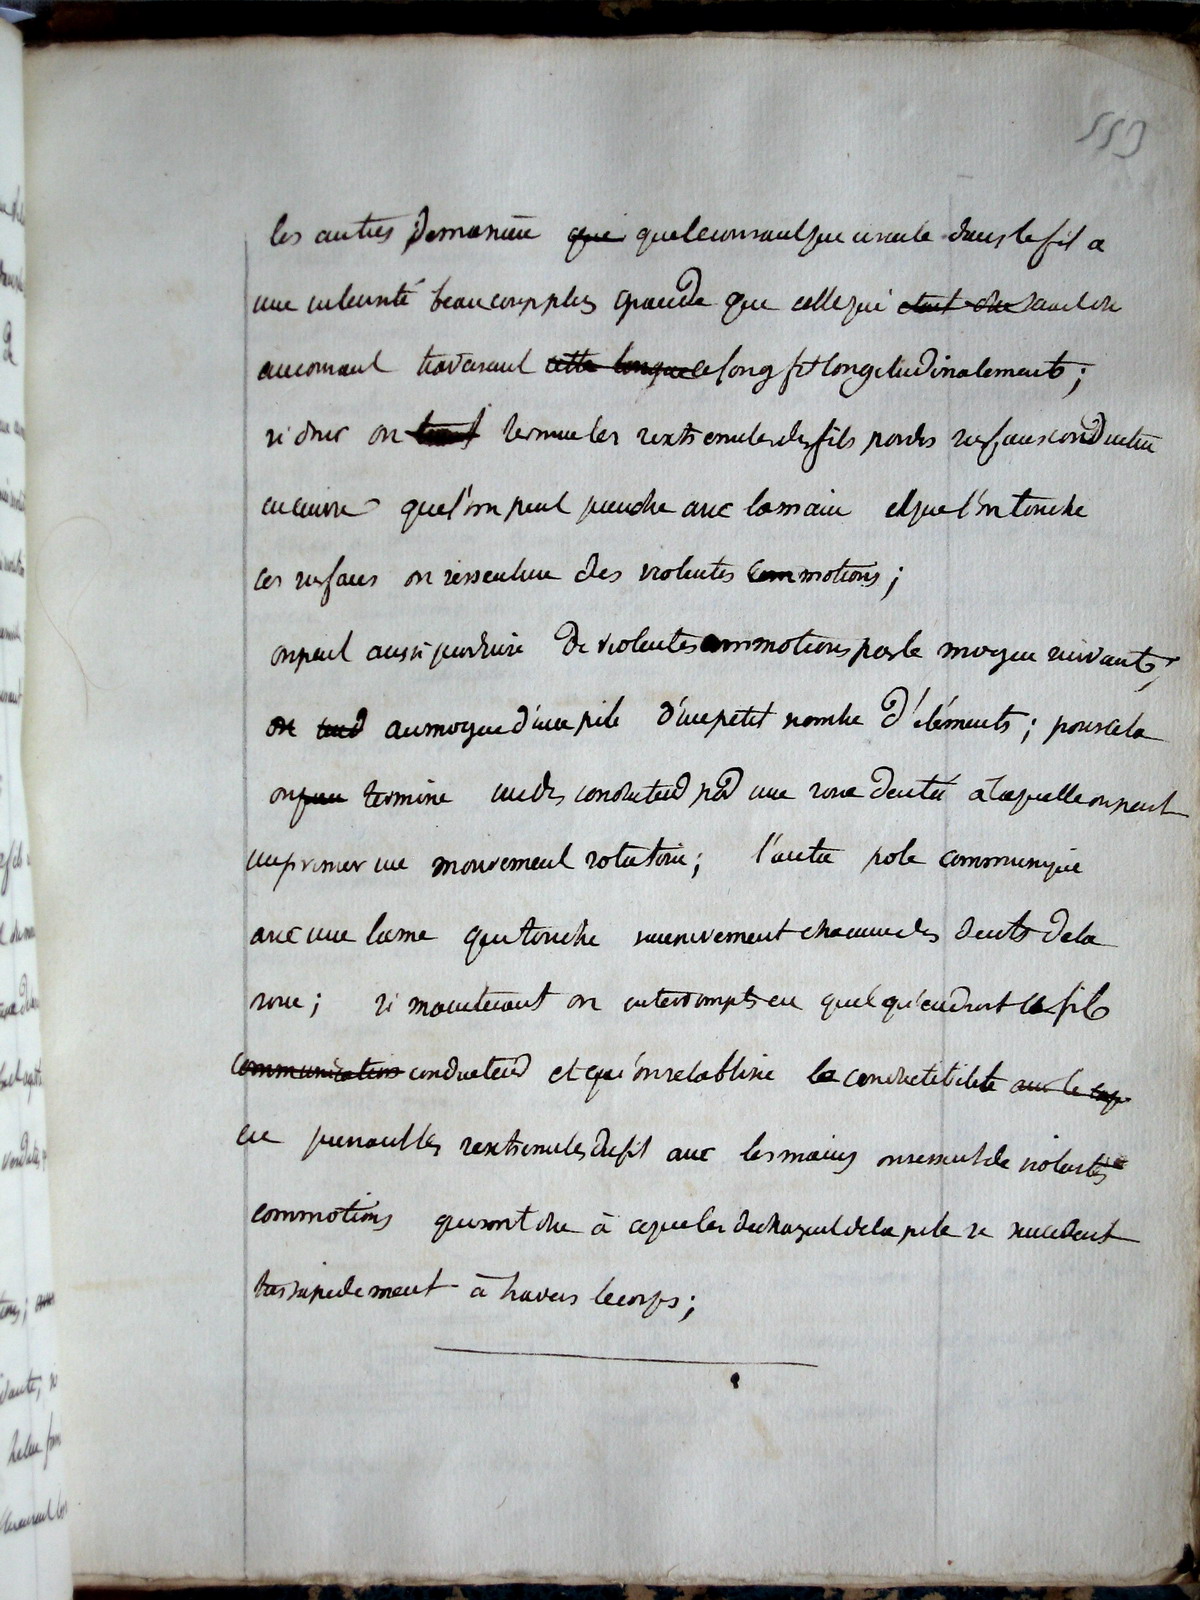 553
les autres de maniere que quele courant que circule dans le fil a
une intensité beaucoup plus grande que celle qui etait due serait due
au courant traversant cette longue le long fil longitudinalement;
si donc on termine les extremites des fils par des surfaces conductrice
en cuivre que l'on peut prendre avec la main et que l'on touche
ces surfaces on ressent une des violentes commotions;
on peut aussi produire de violentes commotions par le moyen suivant;
on tend au moyen d'une pile d'un petit nombre d'éléments; pour cela
on termine un des conducteurs par une roue dentée a laquelle on peut
imprimer un mouvement rotatoire; l'autre pole communique
avec une lame qui touche successivement chacune des dents de la
roue; si maintenant on interrompt en quelqu'endroit le fil
communication conducteur et qu'on retablisse la conductibilite avec le cop
en prenant les extremites du fil avec les mains on ressent de violentes
commotions qui sont due à ce que les decharges de la pile se succedent
tres rapidement à travers le corps;